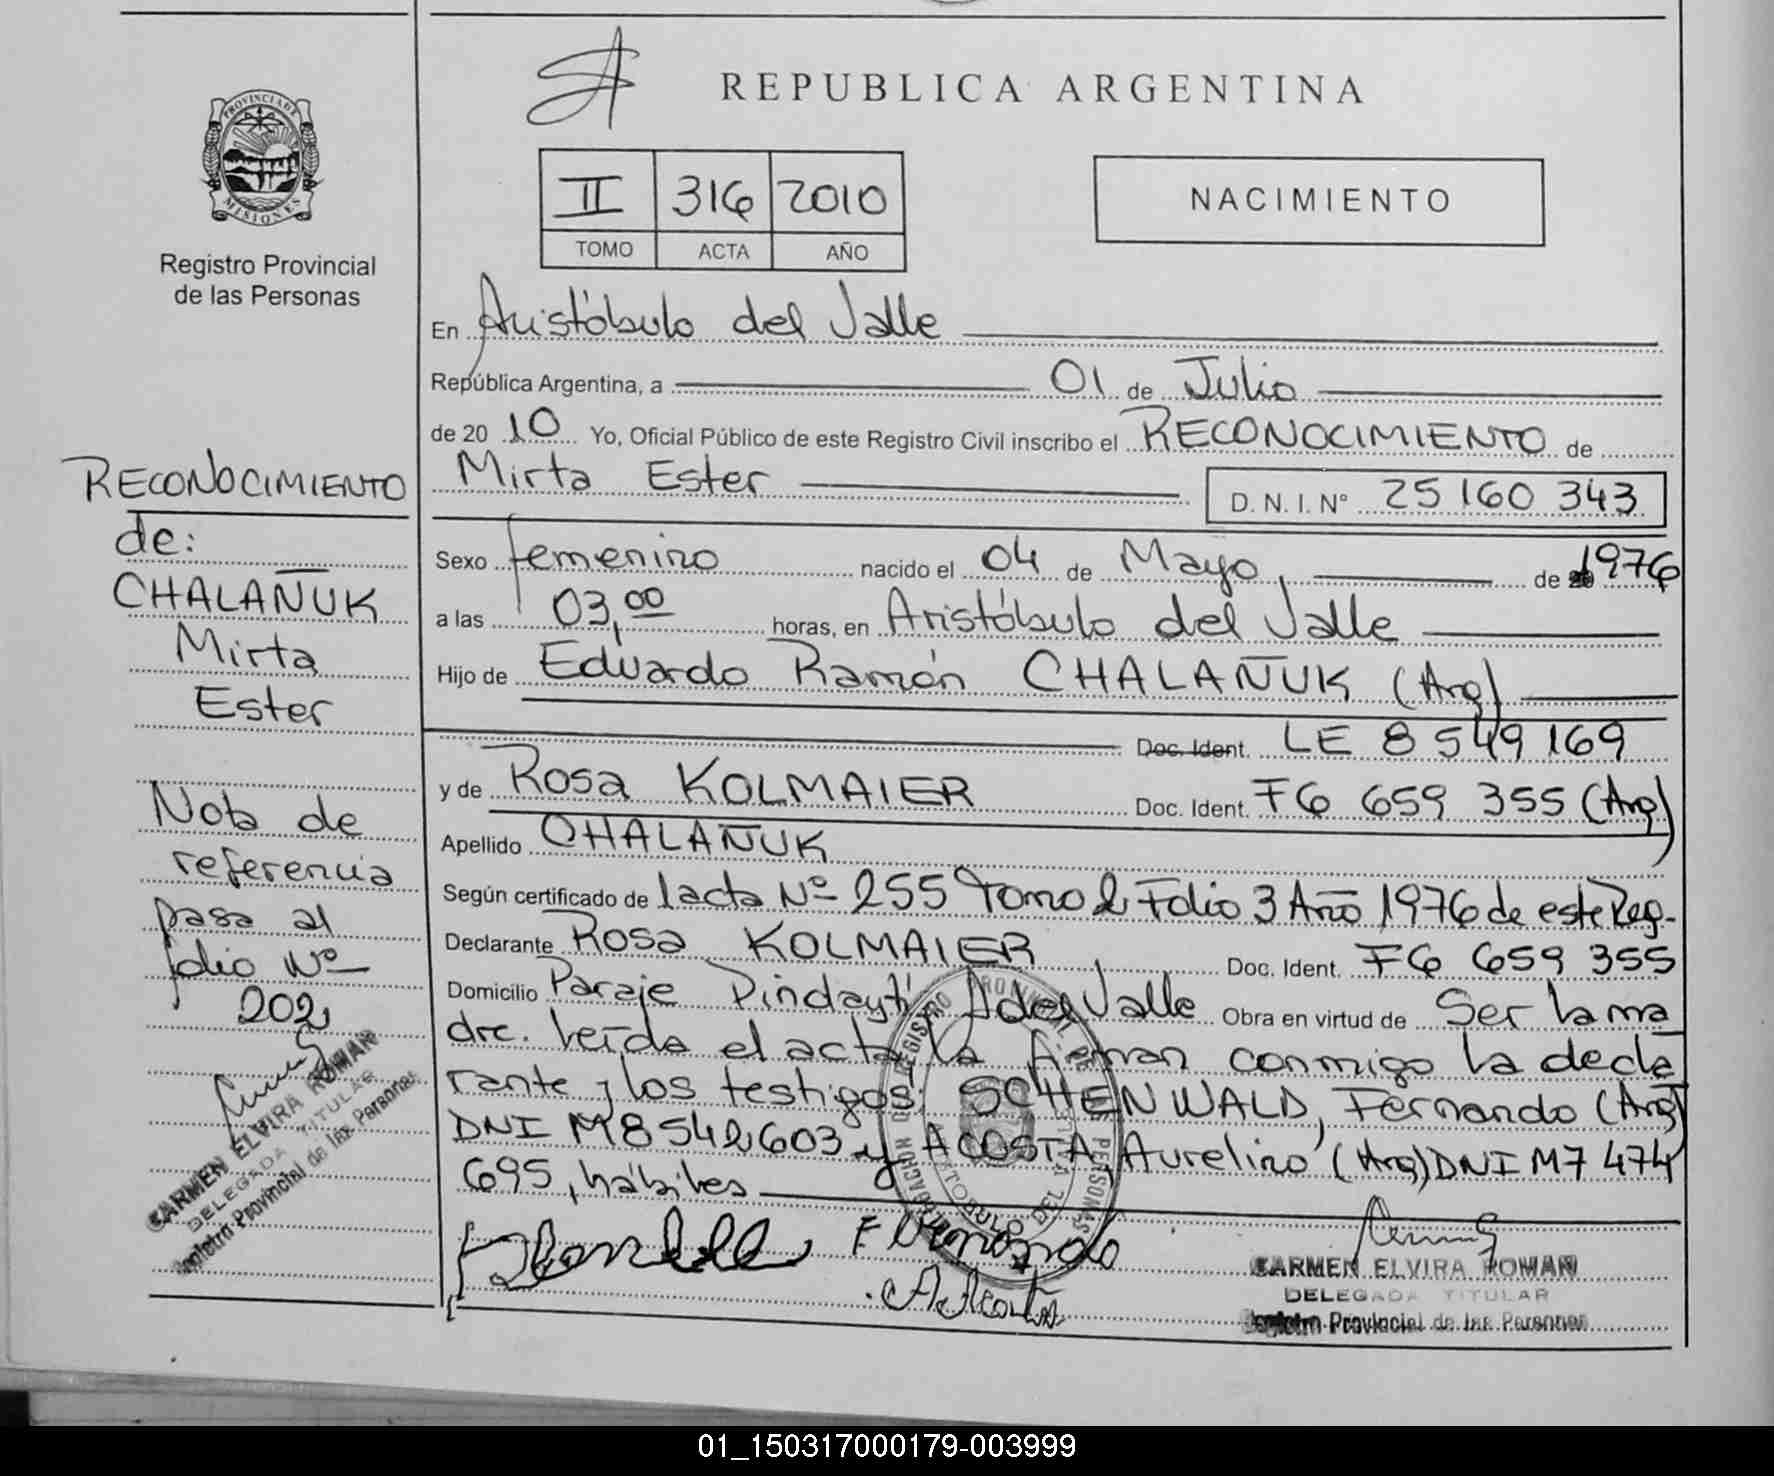 REPUBLICA ARGENTINA
PROVINCIA DE MISIONES
Registro Provincial
de las Personas
II 316 2010
TOMO ACTA AÑO
NACIMIENTO
En Aristóbulo del Valle
República Argentina, a 01 de Julio
de 2010 Yo, Oficial Público de este Registro Civil inscribo el RECONOCIMIENTO de
Mirta Ester D. N. I. Nº 25 160 343
Sexo femenino nacido el 04 de Mayo, de 1976
a las 03,00 horas, en Aristóbulo del Valle
Hijo de Eduardo Ramón CHALAÑUK (Arg)
Doc. Ident. LE 8 549 169
y de Rosa KOLMAIER Doc. Ident. F6 659 355 (Arg)
Apellido CHALAÑUK
Según certificado de lacta Nº 255 Tomo 2 Folio 3 Año 1976 de este Reg.
Declarante Rosa KOLMAIER Doc. Ident. F6 659 355
Domicilio Paraje Pindaytí A del Valle Obra en virtud de Ser la ma
dre. Leída el acta la firman conmigo la decla
rante y los testigos SCHENWALD, Fernando (Arg)
DNI M8 542 603 y ACOSTA, Aurelino (Arg) DNI M7 474
695, hábiles
CARMEN ELVIRA ROMAN
DELEGADA TITULAR
Registro Provincial de las Personas
RECONOCIMIENTO
de:
CHALAÑUK
Mirta
Ester
Nota de
referencia
pasa al
folio Nº
202
CARMEN ELVIRA ROMAN
DELEGADA TITULAR
Registro Provincial de las Personas
01_150317000179-003999